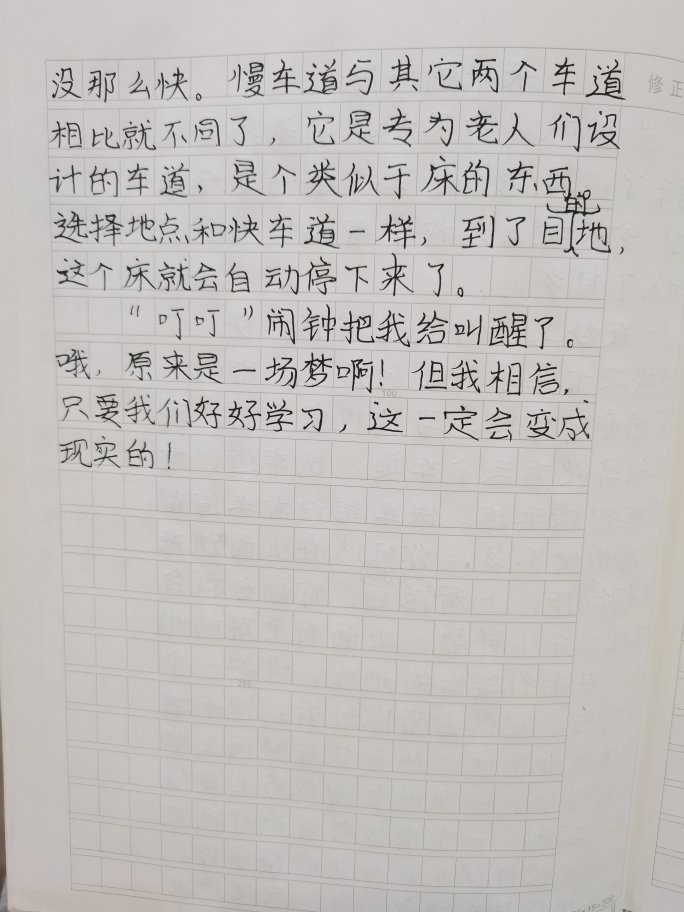 没那么快。慢车道与其它两个车道
修正
相比就不同了，它是专为老人们设
计的车道，是个类似于床的东西，
选择地点和快车道一样，到了目的地，
这个床就会自动停下来了。
“叮叮”闹钟把我给叫醒了。
哦，原来是一场梦啊！但我相信，
100
只要我们好好学习，这一定会变成
现实的！
200